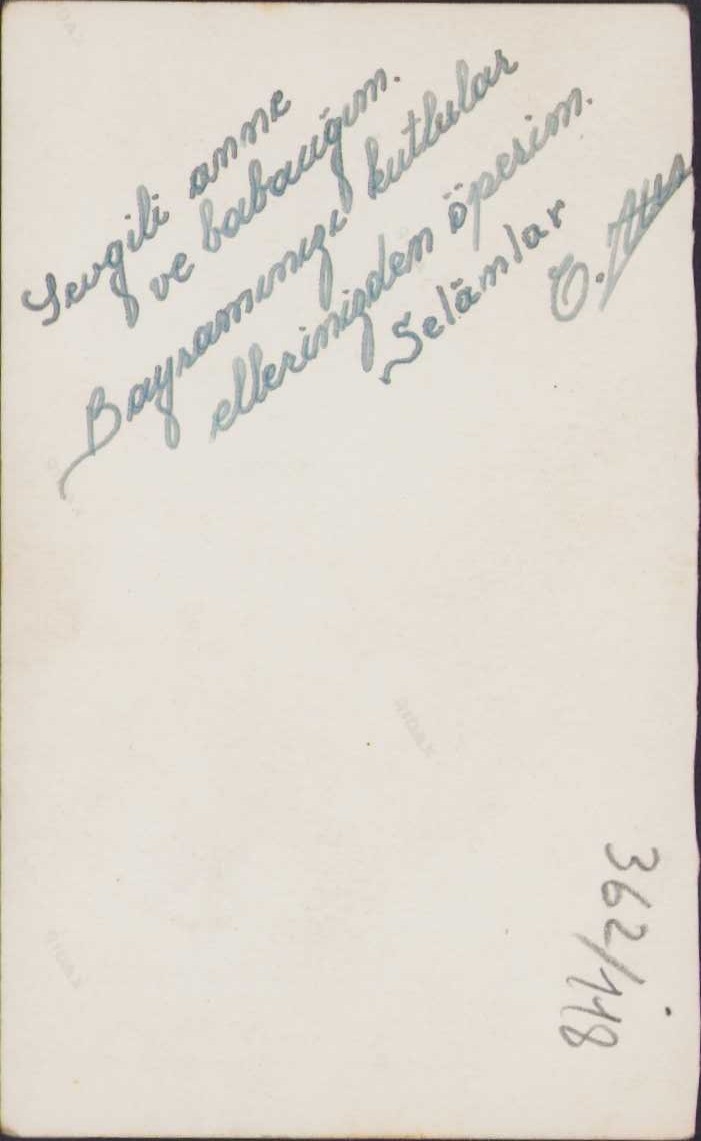 Sevgili anne
ve babacığım.
Bayramınızı kutlular
ellerinizden öperim.
Selâmlar
E.
362/118